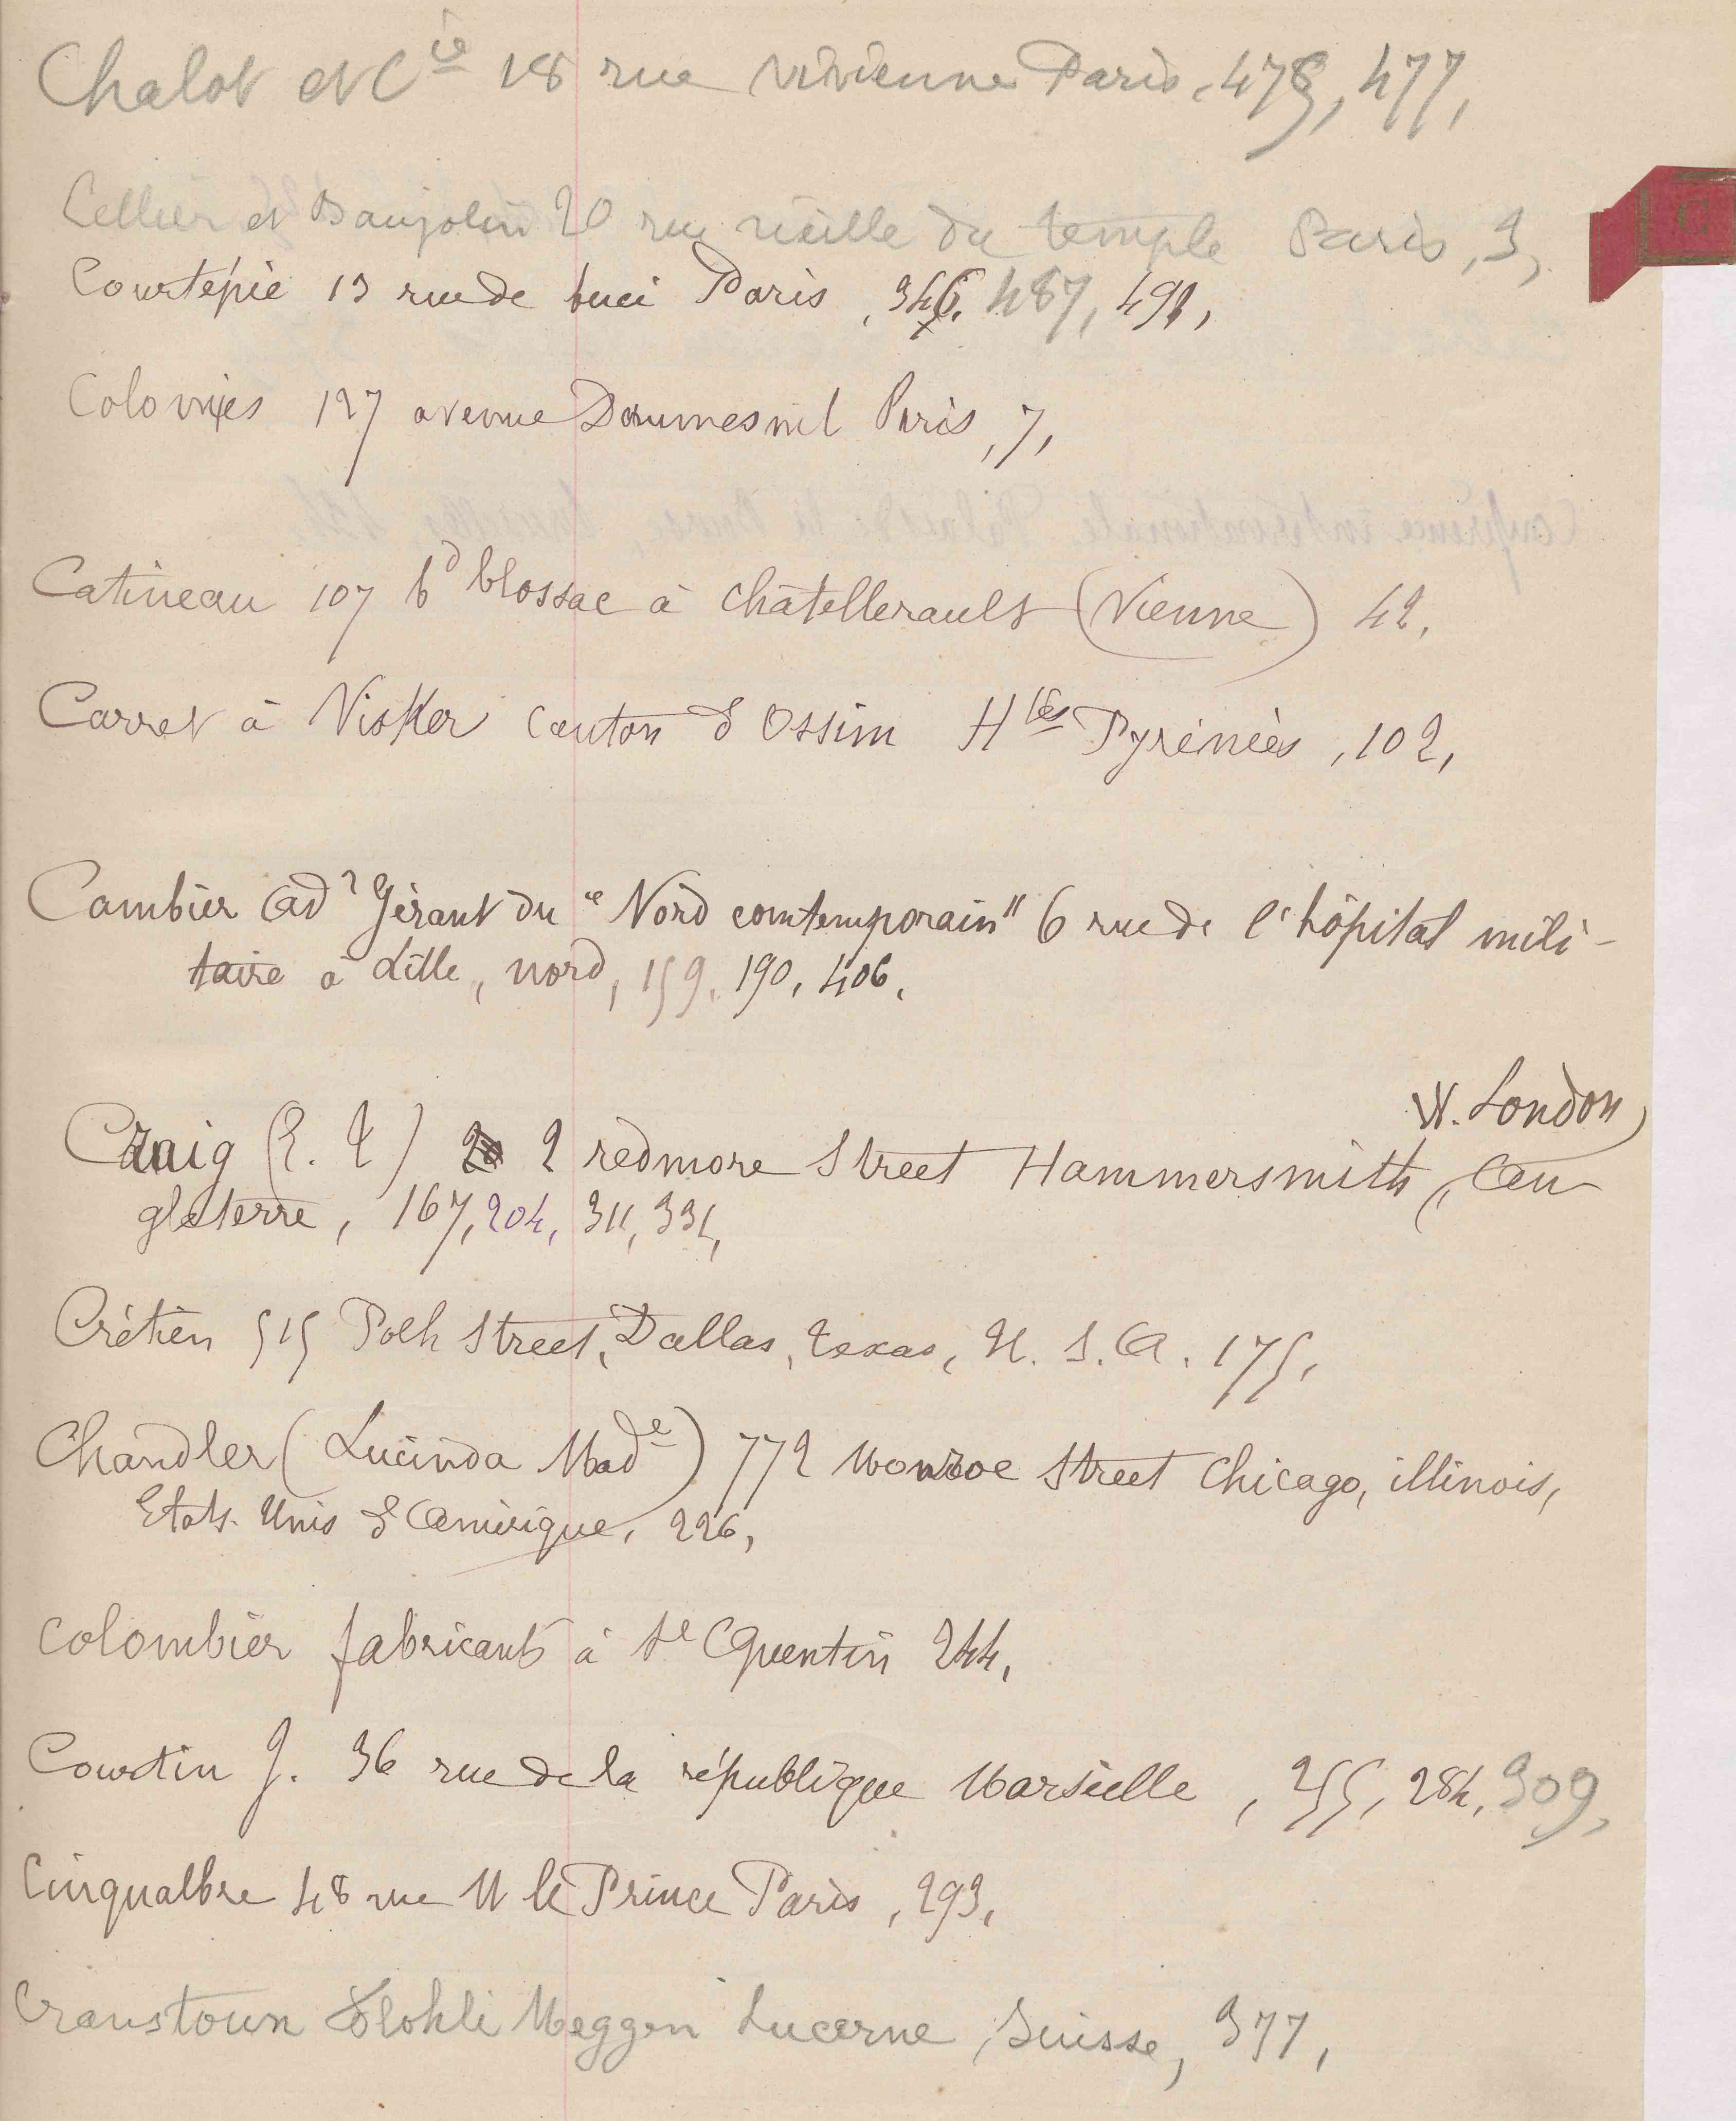 Chalot et Cie 18 rue vivienne Paris, 478, 477,
Cellier et Baujolin 20 rue vieille du temple Paris, 3,
Courtépie 13 rue de buci Paris, 346, 487, 491,
Colonies 127 avenue Daumesnil Paris, 7,
C
Catineau 107 bd blossac à châtellerault (Vienne) 42,
Carret à Visker canton d'Ossun Htes Pyrénées, 102,
Cambier Ad? Gérant du "Nord comtemporain" 6 rue de l'hôpital mili-
taire à Lille, nord, 159, 190, 406,
W. London
Craig (E. T) 2 redmore Street Hammersmith, An
gleterre, 167, 204, 311, 331,
Crétien 515 Polk Street, Dallas, texas, U. S. A. 175,
Chandler (Lucinda Made) 772 Monroe Street Chicago, illinois,
Etats-Unis d'Amérique, 226,
Colombier fabricant à St Quentin 244,
Courtin J. 36 rue de la république Marseille, 255, 284, 309,
Cinqualbre 48 rue M le Prince Paris, 293,
Cranstoun Meggen Lucerne, Suisse, 377,